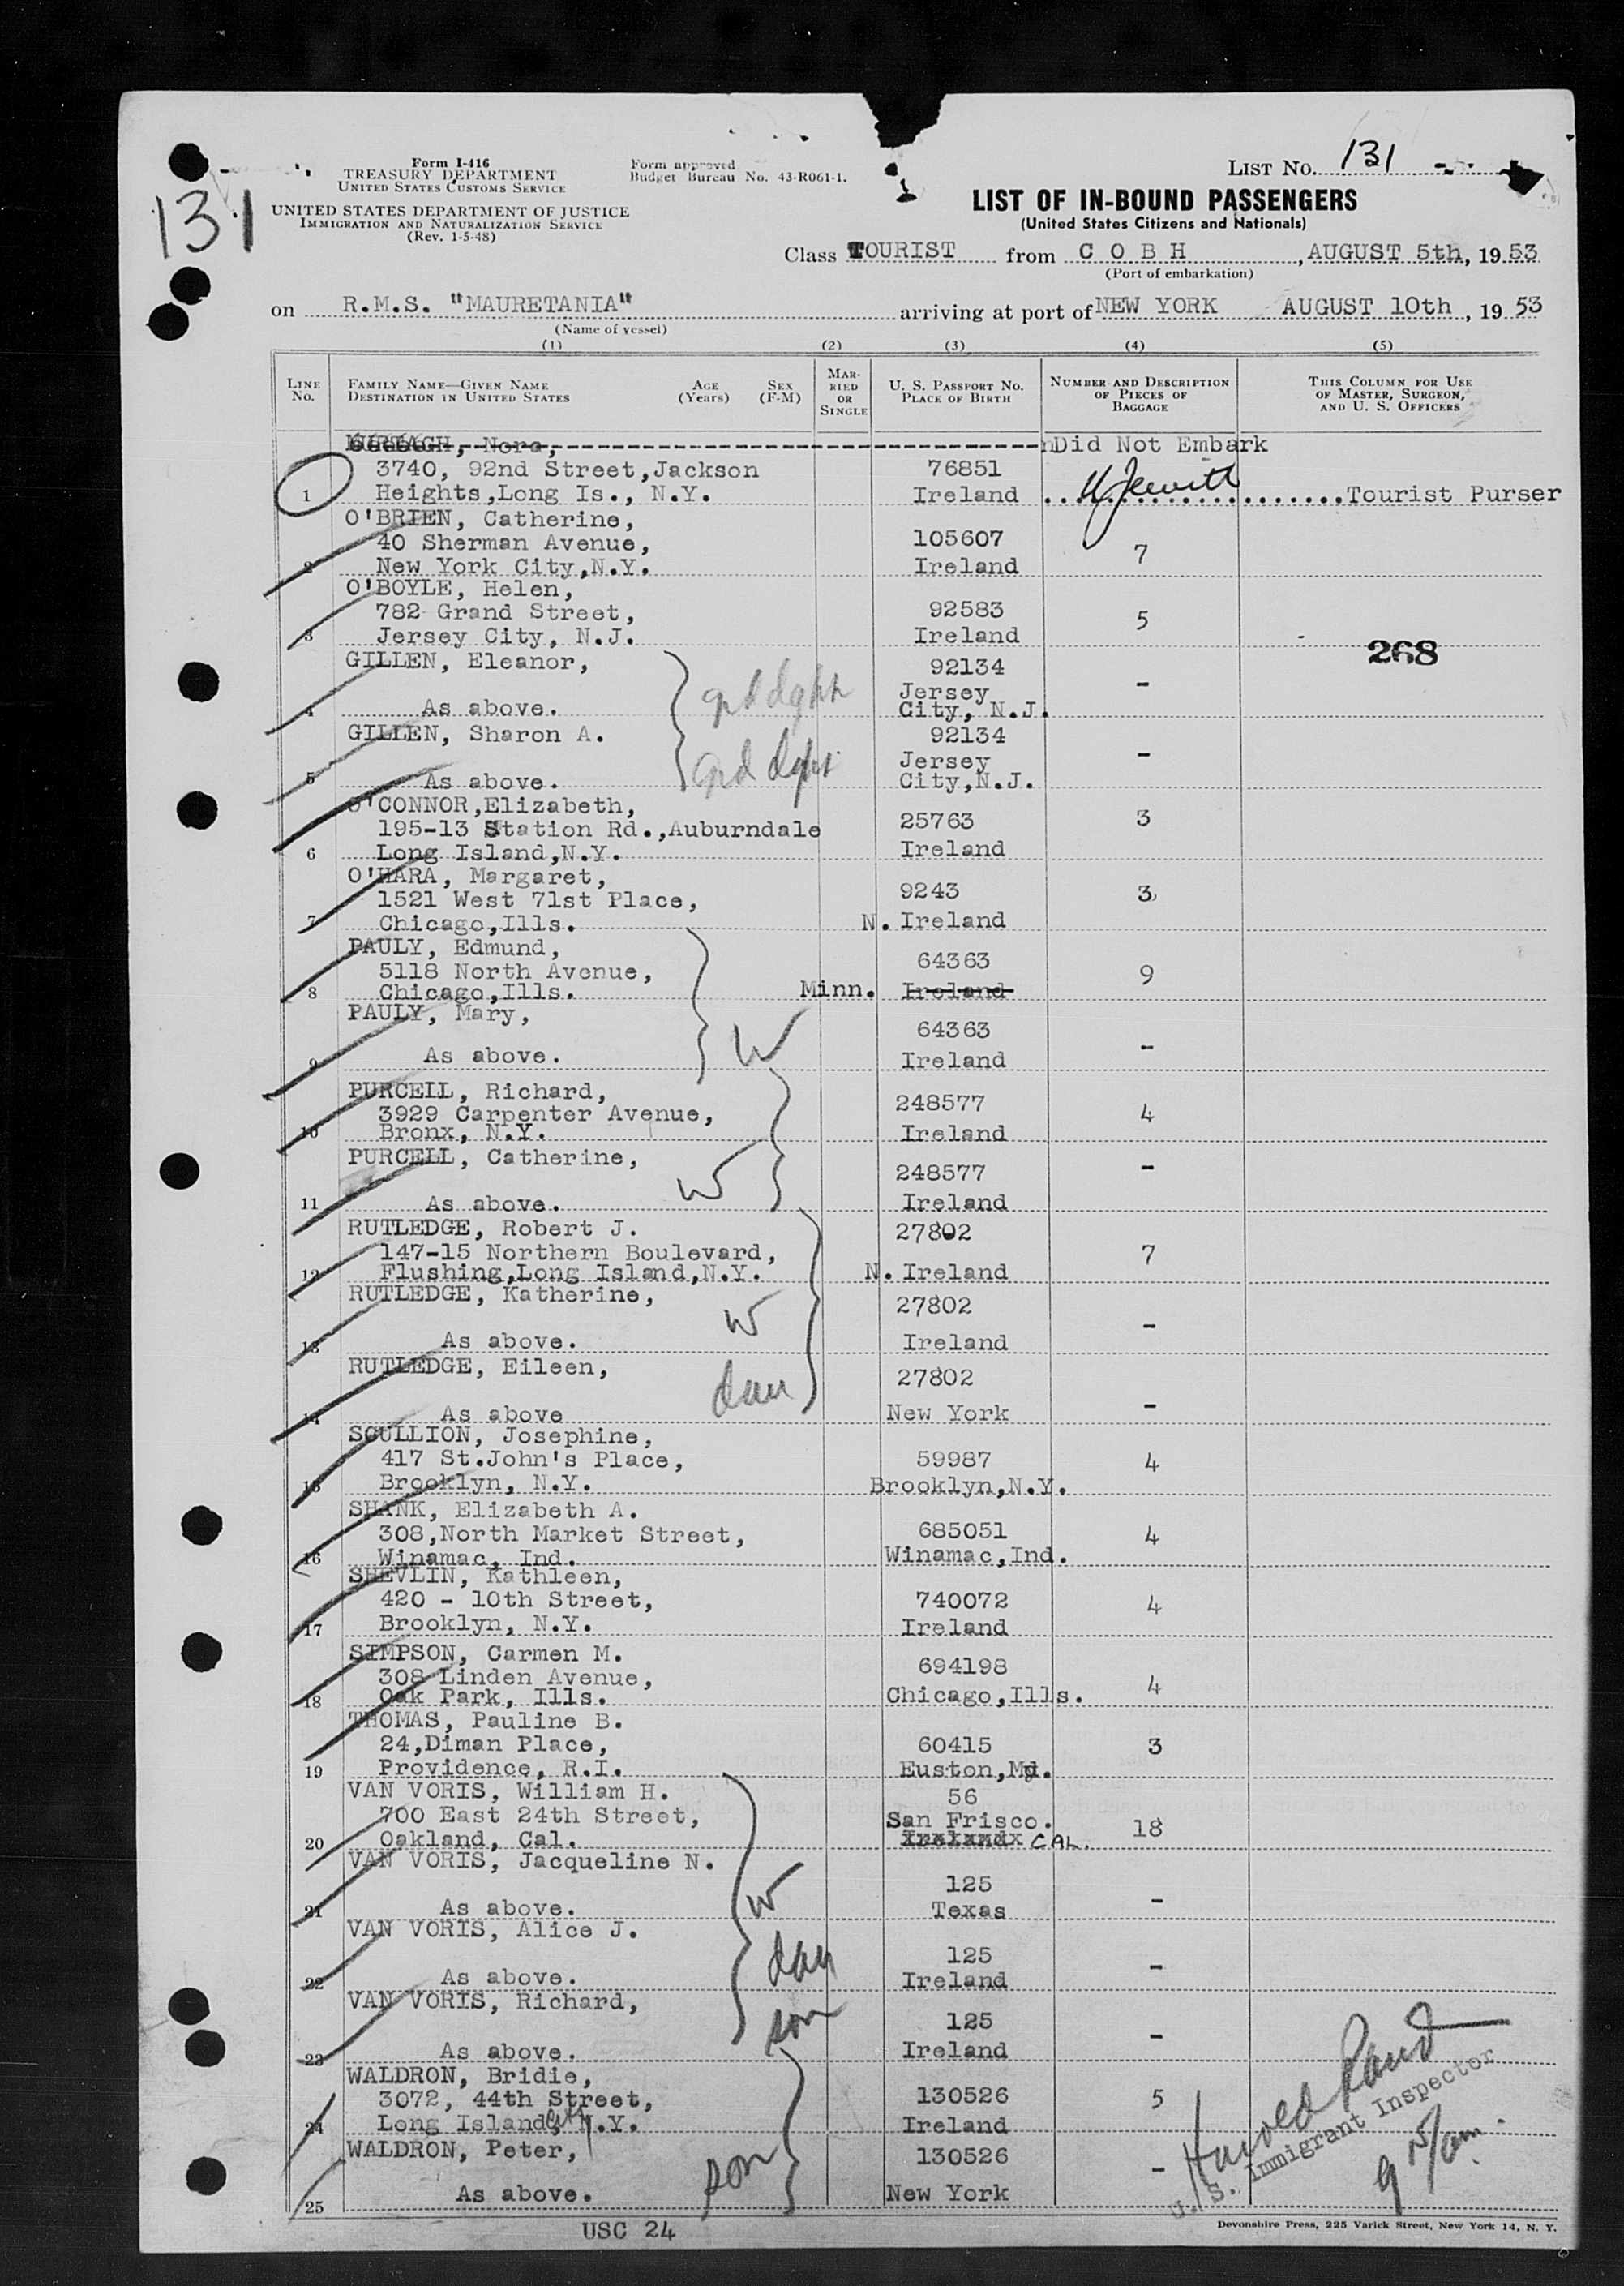 Form I-416
TREASURY DEPARTMENT
UNITED STATES CUSTOMS SERVICE
UNITED STATES DEPARTMENT OF JUSTICE
IMMIGRATION AND NATURALIZATION SERVICE
(Rev. 1-5-48)
Form approved
Budget Bureau No. 43-R061-1.
LIST No. 131
131
LIST OF IN-BOUND PASSENGERS
(United States Citizens and Nationals)
Class TOURIST from COBH, AUGUST 5th, 1953
(Port of embarkation)
on R.M.S. "MAURETANIA" arriving at port of NEW YORK AUGUST 10th, 1953
(Name of vessel)
(1) (2) (3) (4) (5)
LINE No. FAMILY NAME—GIVEN NAME DESTINATION IN UNITED STATES AGE (Years) SEX (F-M) MARRIED OR SINGLE U. S. PASSPORT No. PLACE OF BIRTH NUMBER AND DESCRIPTION OF PIECES OF BAGGAGE THIS COLUMN FOR USE OF MASTER, SURGEON, AND U. S. OFFICERS
MURTAGH, Nora, Did Not Embark
3740, 92nd Street,Jackson 76851
1 Heights,Long Is., N.Y. Ireland Tourist Purser
O'BRIEN, Catherine,
40 Sherman Avenue, 105607 7
2 New York City,N.Y. Ireland
O'BOYLE, Helen,
782 Grand Street, 92583 5
3 Jersey City, N.J. Ireland
268
GILLEN, Eleanor, 92134 -
grd dghtr Jersey
4 As above. City, N.J.
GILLEN, Sharon A. 92134 -
grd dghtr Jersey
5 As above. City,N.J.
O'CONNOR,Elizabeth,
195-13 Station Rd.,Auburndale 25763 3
6 Long Island,N.Y. Ireland
O'HARA, Margaret,
1521 West 71st Place, 9243 3
7 Chicago,Ills. N. Ireland
PAULY, Edmund,
5118 North Avenue, 64363 9
8 Chicago,Ills. Minn. Ireland
PAULY, Mary, 64363 -
9 As above. W Ireland
PURCELL, Richard,
3929 Carpenter Avenue, 248577 4
10 Bronx, N.Y. Ireland
PURCELL, Catherine, 248577 -
11 As above. W Ireland
RUTLEDGE, Robert J. 27802
147-15 Northern Boulevard, 7
12 Flushing,Long Island,N.Y. N. Ireland
RUTLEDGE, Katherine, 27802 -
13 As above. W Ireland
RUTLEDGE, Eileen, 27802 -
14 As above dau New York
SCULLION, Josephine,
417 St.John's Place, 59987 4
15 Brooklyn, N.Y. Brooklyn,N.Y.
SHANK, Elizabeth A.
308,North Market Street, 685051 4
16 Winamac, Ind. Winamac,Ind.
SHEVLIN, Kathleen,
420 - 10th Street, 740072 4
17 Brooklyn, N.Y. Ireland
SIMPSON, Carmen M.
308 Linden Avenue, 694198 4
18 Oak Park, Ills. Chicago,Ills.
THOMAS, Pauline B.
24,Diman Place, 60415 3
19 Providence, R.I. Euston,Md.
VAN VORIS, William H. 56
700 East 24th Street, San Frisco. 18
20 Oakland, Cal. Ireland CAL.
VAN VORIS, Jacqueline N. 125 -
21 As above. W Texas
VAN VORIS, Alice J. 125 -
22 As above. dau Ireland
VAN VORIS, Richard, 125 -
23 As above. son Ireland
WALDRON, Bridie,
3072, 44th Street, 130526 5
24 Long Island City N.Y. Ireland
WALDRON, Peter, 130526 -
25 As above. son New York
U. S. Immigrant Inspector
USC 24
Devonshire Press, 225 Varick Street, New York 14, N. Y.